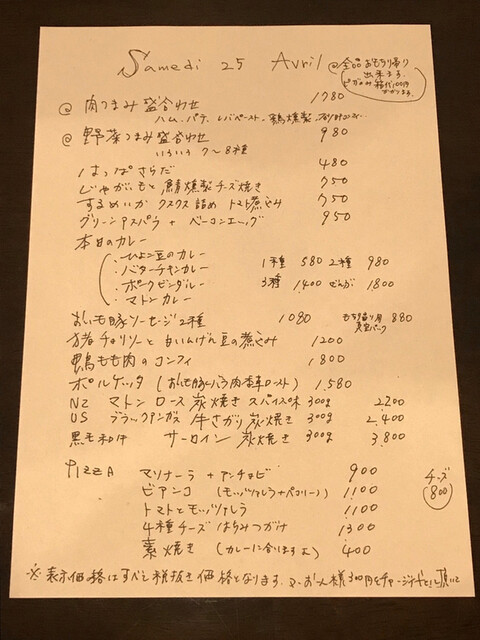 Samedi 25 Avril
@全品おもち帰り
出来ます。
ピザのみ箱代100円
かかります。
@ 肉つまみ盛合わせ 1780
ハム、パテ、レバペースト、鴨燻製、
@ 野菜つまみ盛合わせ 980
いろいろ 7〜8種
はっぱさらだ 480
じゃがいもと鯖燻製チーズ焼き 750
するめいか クスクス詰め トマト煮込み 750
グリーンアスパラ + ベーコンエッグ 950
本日のカレー
・ひよこ豆のカレー
・バターチキンカレー 1種 580 2種 980
・ポークビンダルー 3種 1400 ぜんぶ 1800
・マトンカレー
おいも豚ソーセージ2種 1080 もち帰り用 真空パック 880
猪チョリソーと白いんげん豆の煮込み 1200
鴨もも肉のコンフィ 1800
ポルケッタ (おいも豚バラ肉香草ロースト) 1,580
NZ マトンロース炭焼き スパイス味 300g 2200
US ブラックアンガス 牛さがり炭焼き 300g 2,400
黒毛和牛 サーロイン 炭焼き 300g 3,800
PIZZA マリナーラ + アンチョビ 900
ビアンコ (モッツァレラ+パコリーノ) 1,100
トマトとモッツァレラ 1100
4種チーズ はちみつがけ 1300
素焼き (カレーに合います) 400
チーズ
800
※ 表示価格はすべて税抜き価格となります。お一人様300円をチャージとして頂いて